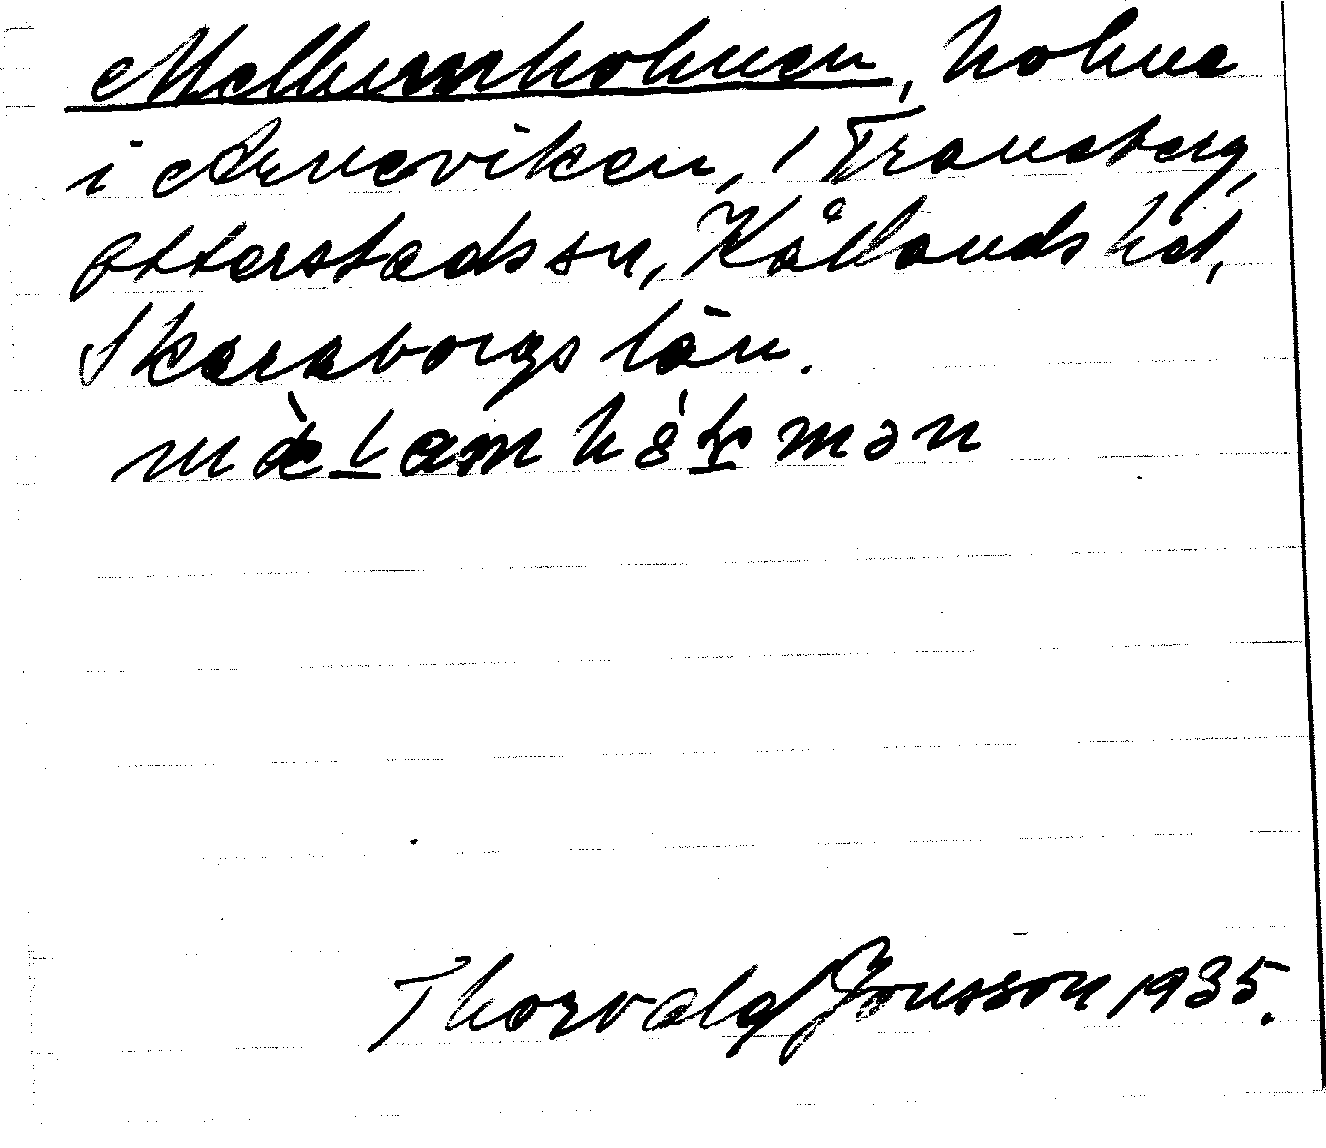 Mellumholmen, holme
i Arneviken, 1 Traneberg,
Otterstads sn, Kållands hd,
Skaraborgs län.
Thorvald Jonsson 1935.